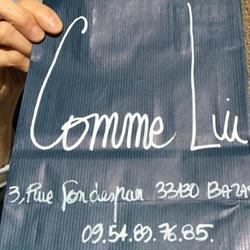 Comme Lui
3, Rue Fondespan 33430 BAZA
09.54.89.76.85.